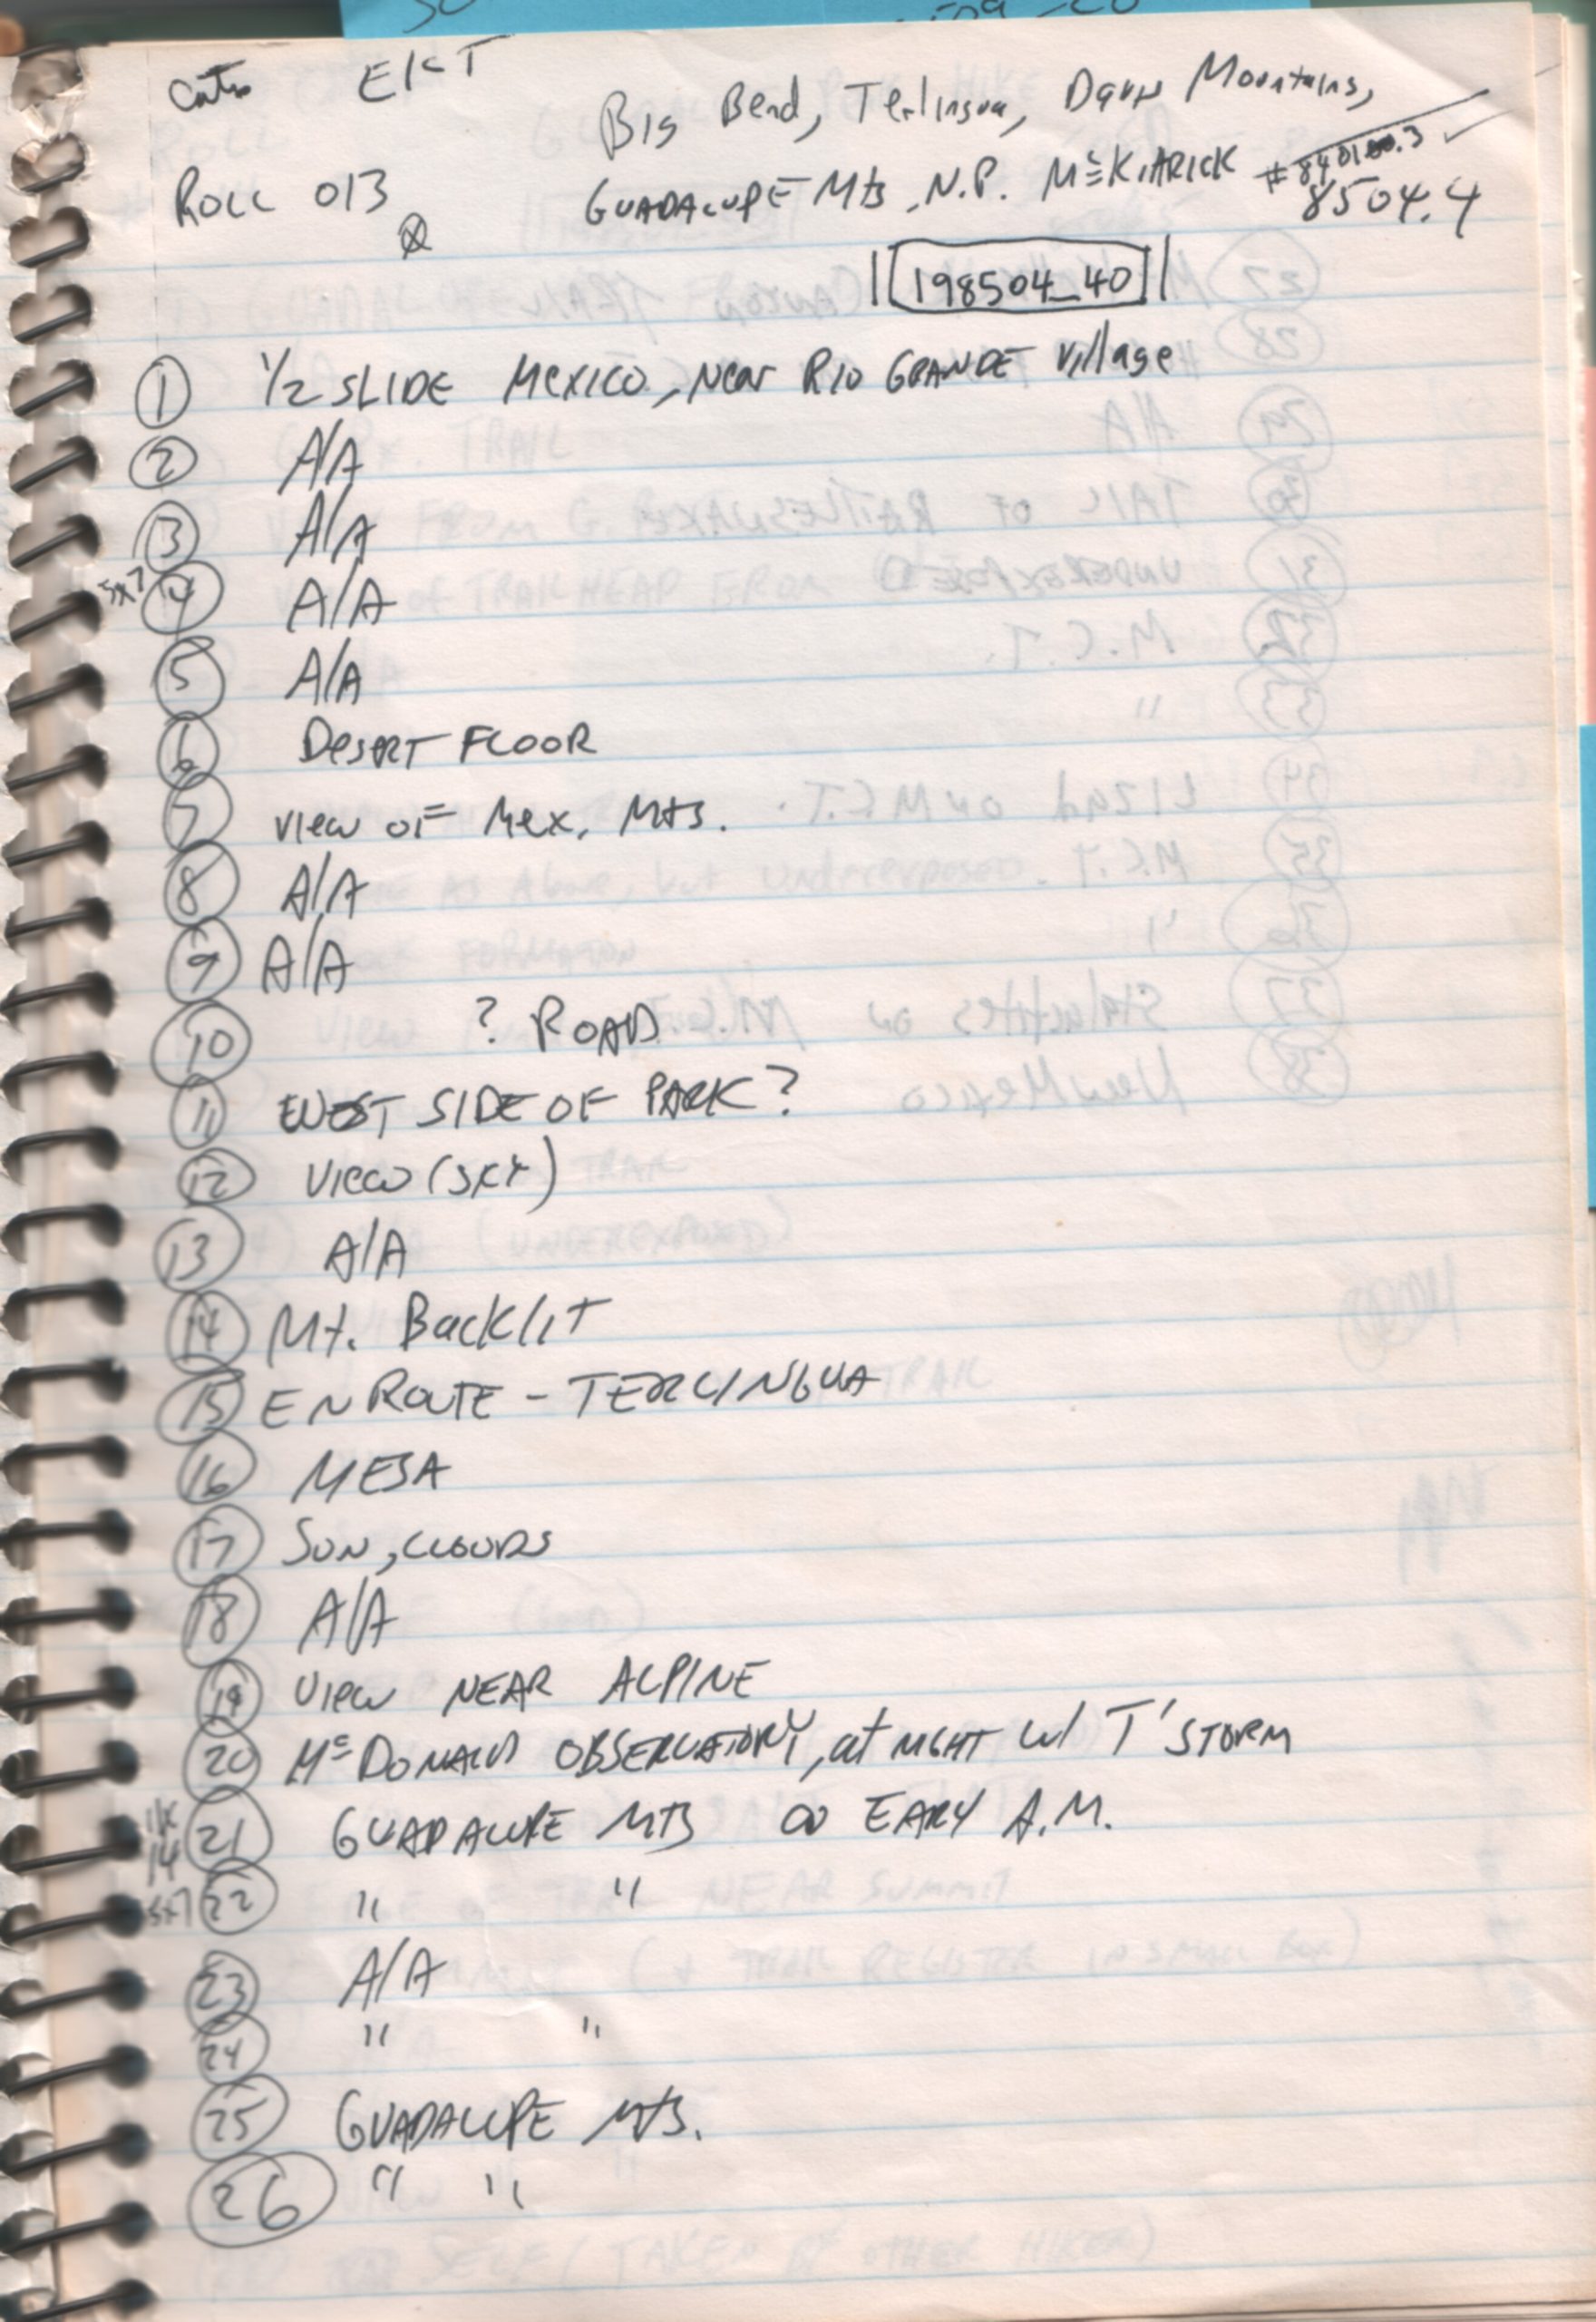 EKT
Big Bend, Terlingua, Davis Mountains,
ROLL 013
GUADALUPE Mts, N.P. McKITTRICK
8504.4
198504_40
1 1/2 SLIDE MEXICO, Near RIO GRANDE Village
2 A/A
3 A/A
5x7 4 A/A
5 A/A
6 DESERT FLOOR
7 VIEW OF Mex. Mts.
8 A/A
9 A/A
10 ? ROAD
11 WEST SIDE OF PARK?
12 VIEW (SKY)
13 A/A
14 Mt. Backlit
15 EN ROUTE - TERLINGUA
16 MESA
17 SUN, CLOUDS
18 A/A
19 VIEW NEAR ALPINE
20 McDONALD OBSERVATORY, at NIGHT W/ T'STORM
11x14 21 GUADALUPE MTS EARY A.M.
5x7 22 " "
23 A/A
24 " "
25 GUADALUPE Mts.
26 " "